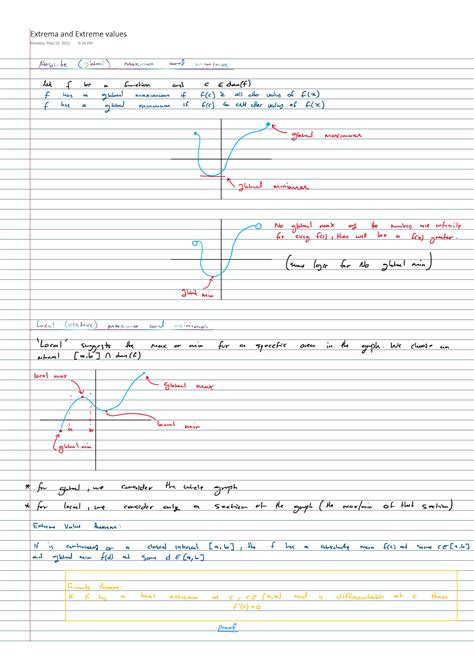 Extrema and Extreme values
Monday, May 16, 2022 4:34 PM
Absolute (global) maximums and minimums
let f be a function and c ∈ dom(f)
f has a global maximum if f(c) ≥ all other values of f(x)
f has a global minimum if f(c) ≤ all other values of f(x)
global maximum
global minimum
No global max of the numbers are infinity
for every f(c), there will be a f(x) greater.
(same logic for No global min)
global min
Local (relative) maxima and minimums
'Local' suggests the max or min for a specific area in the graph. We choose an
interval [a,b] ∩ dom(f)
local max
global max
local min
a b
global min
* for global, we consider the whole graph
* for local, we consider only a section of the graph (the max/min of that section)
Extreme Value theorem:
If is continuous on a closed interval [a,b], the f has a absolute max f(c) at some c∈[a,b]
and global min f(d) at some d ∈ [a,b]
theorem:
if f has a local extremum at c, c∈(a,b) and is differentiable at c then
f'(c)=0
proof